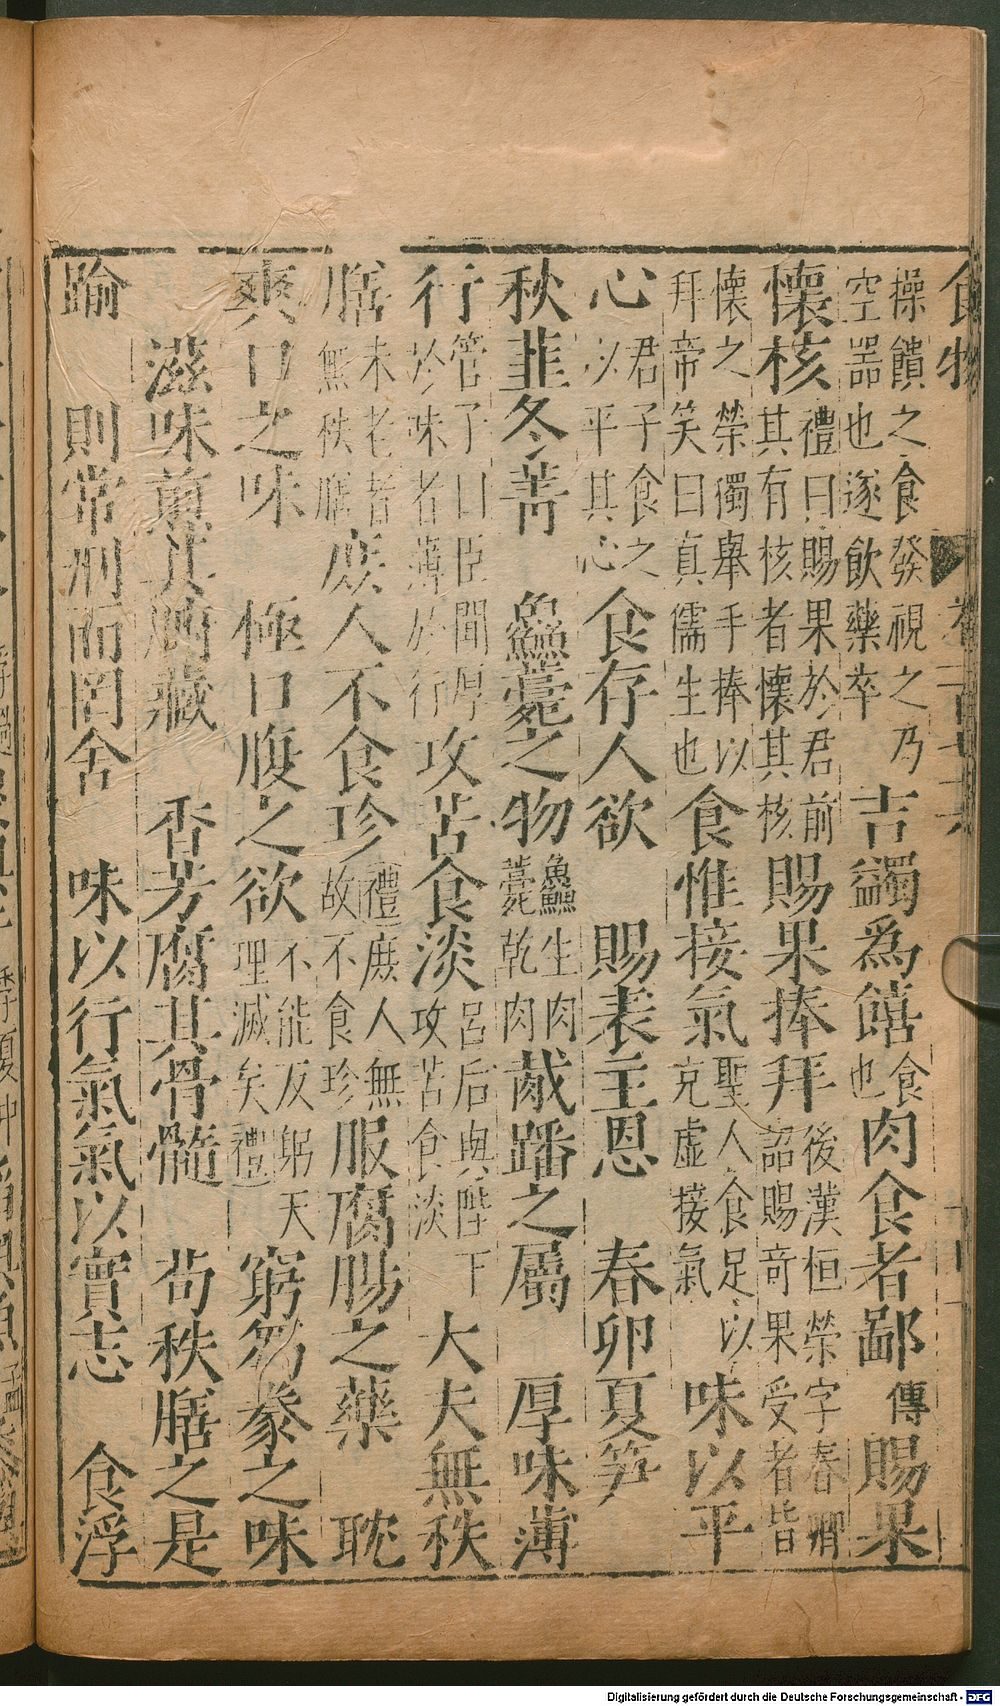 食物
操饋之食發視之乃
空器也遂飲藥卒
吉蠲爲饎食也肉食者鄙傳賜果
懷核禮曰賜果於君前
其有核者懷其核
賜果捧拜後漢桓榮字春卿
詔賜奇果受者皆
懷之榮獨舉手捧以
拜帝笑曰真儒生也
食惟接氣聖人食足以
充虛接氣
味以平
心君子食之
以平其心
食存人欲 賜表主恩 春卵夏笋
秋韭冬菁 鱻薧之物鱻生肉
薧乾肉
胾膰之屬 厚味薄
行管子曰臣聞厚
於味者薄於行
攻苦食淡呂后與陛下
攻苦食淡
大夫無秩
膳未老者
無秩膳
庶人不食珍禮庶人無
故不食珍
服腐腸之藥 耽
爽口之味 極口腹之欲不能反躬天
理滅矣禮
窮芻豢之味
滋味煎其腑臟 香芳腐其骨髓 苟秩膳之是
踰 則常刑而罔舍 味以行氣氣以實志 食浮
Digitalisierung gefördert durch die Deutsche Forschungsgemeinschaft - DFG